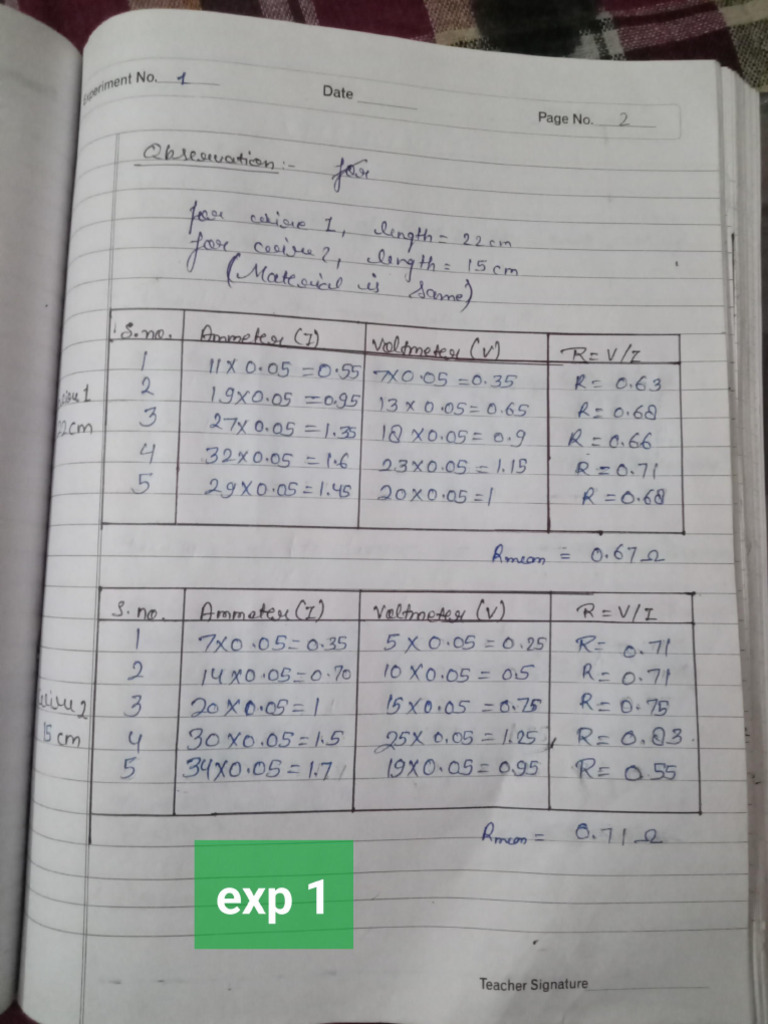 Experiment No. 1
Date
Page No. 2
Observation :- for
for wire 1, length = 22 cm
for wire 2, length = 15 cm
(Material is same)
S.no. Ammeter (I) Voltmeter (V) R = V/I
1 11 X 0.05 = 0.55 7X0.05 = 0.35 R = 0.63
2 19X0.05 = 0.95 13 X 0.05 = 0.65 R = 0.68
3 27X0.05 = 1.35 18 X0.05 = 0.9 R = 0.66
4 32X0.05 = 1.6 23X0.05 = 1.15 R = 0.71
5 29X0.05 = 1.45 20X0.05 = 1 R = 0.68
wire 1
22cm
Rmean = 0.67 Ω
S. no. Ammeter (I) Voltmeter (V) R = V/I
1 7X0.05 = 0.35 5 X 0.05 = 0.25 R = 0.71
2 14X0.05 = 0.70 10 X0.05 = 0.5 R = 0.71
3 20X0.05 = 1 15X0.05 = 0.75 R = 0.75
4 30X0.05 = 1.5 25X 0.05 = 1.25 R = 0.83
5 34X0.05 = 1.7 19X0.05 = 0.95 R = 0.55
wire 2
15 cm
Rmean = 0.71 Ω
exp 1
Teacher Signature